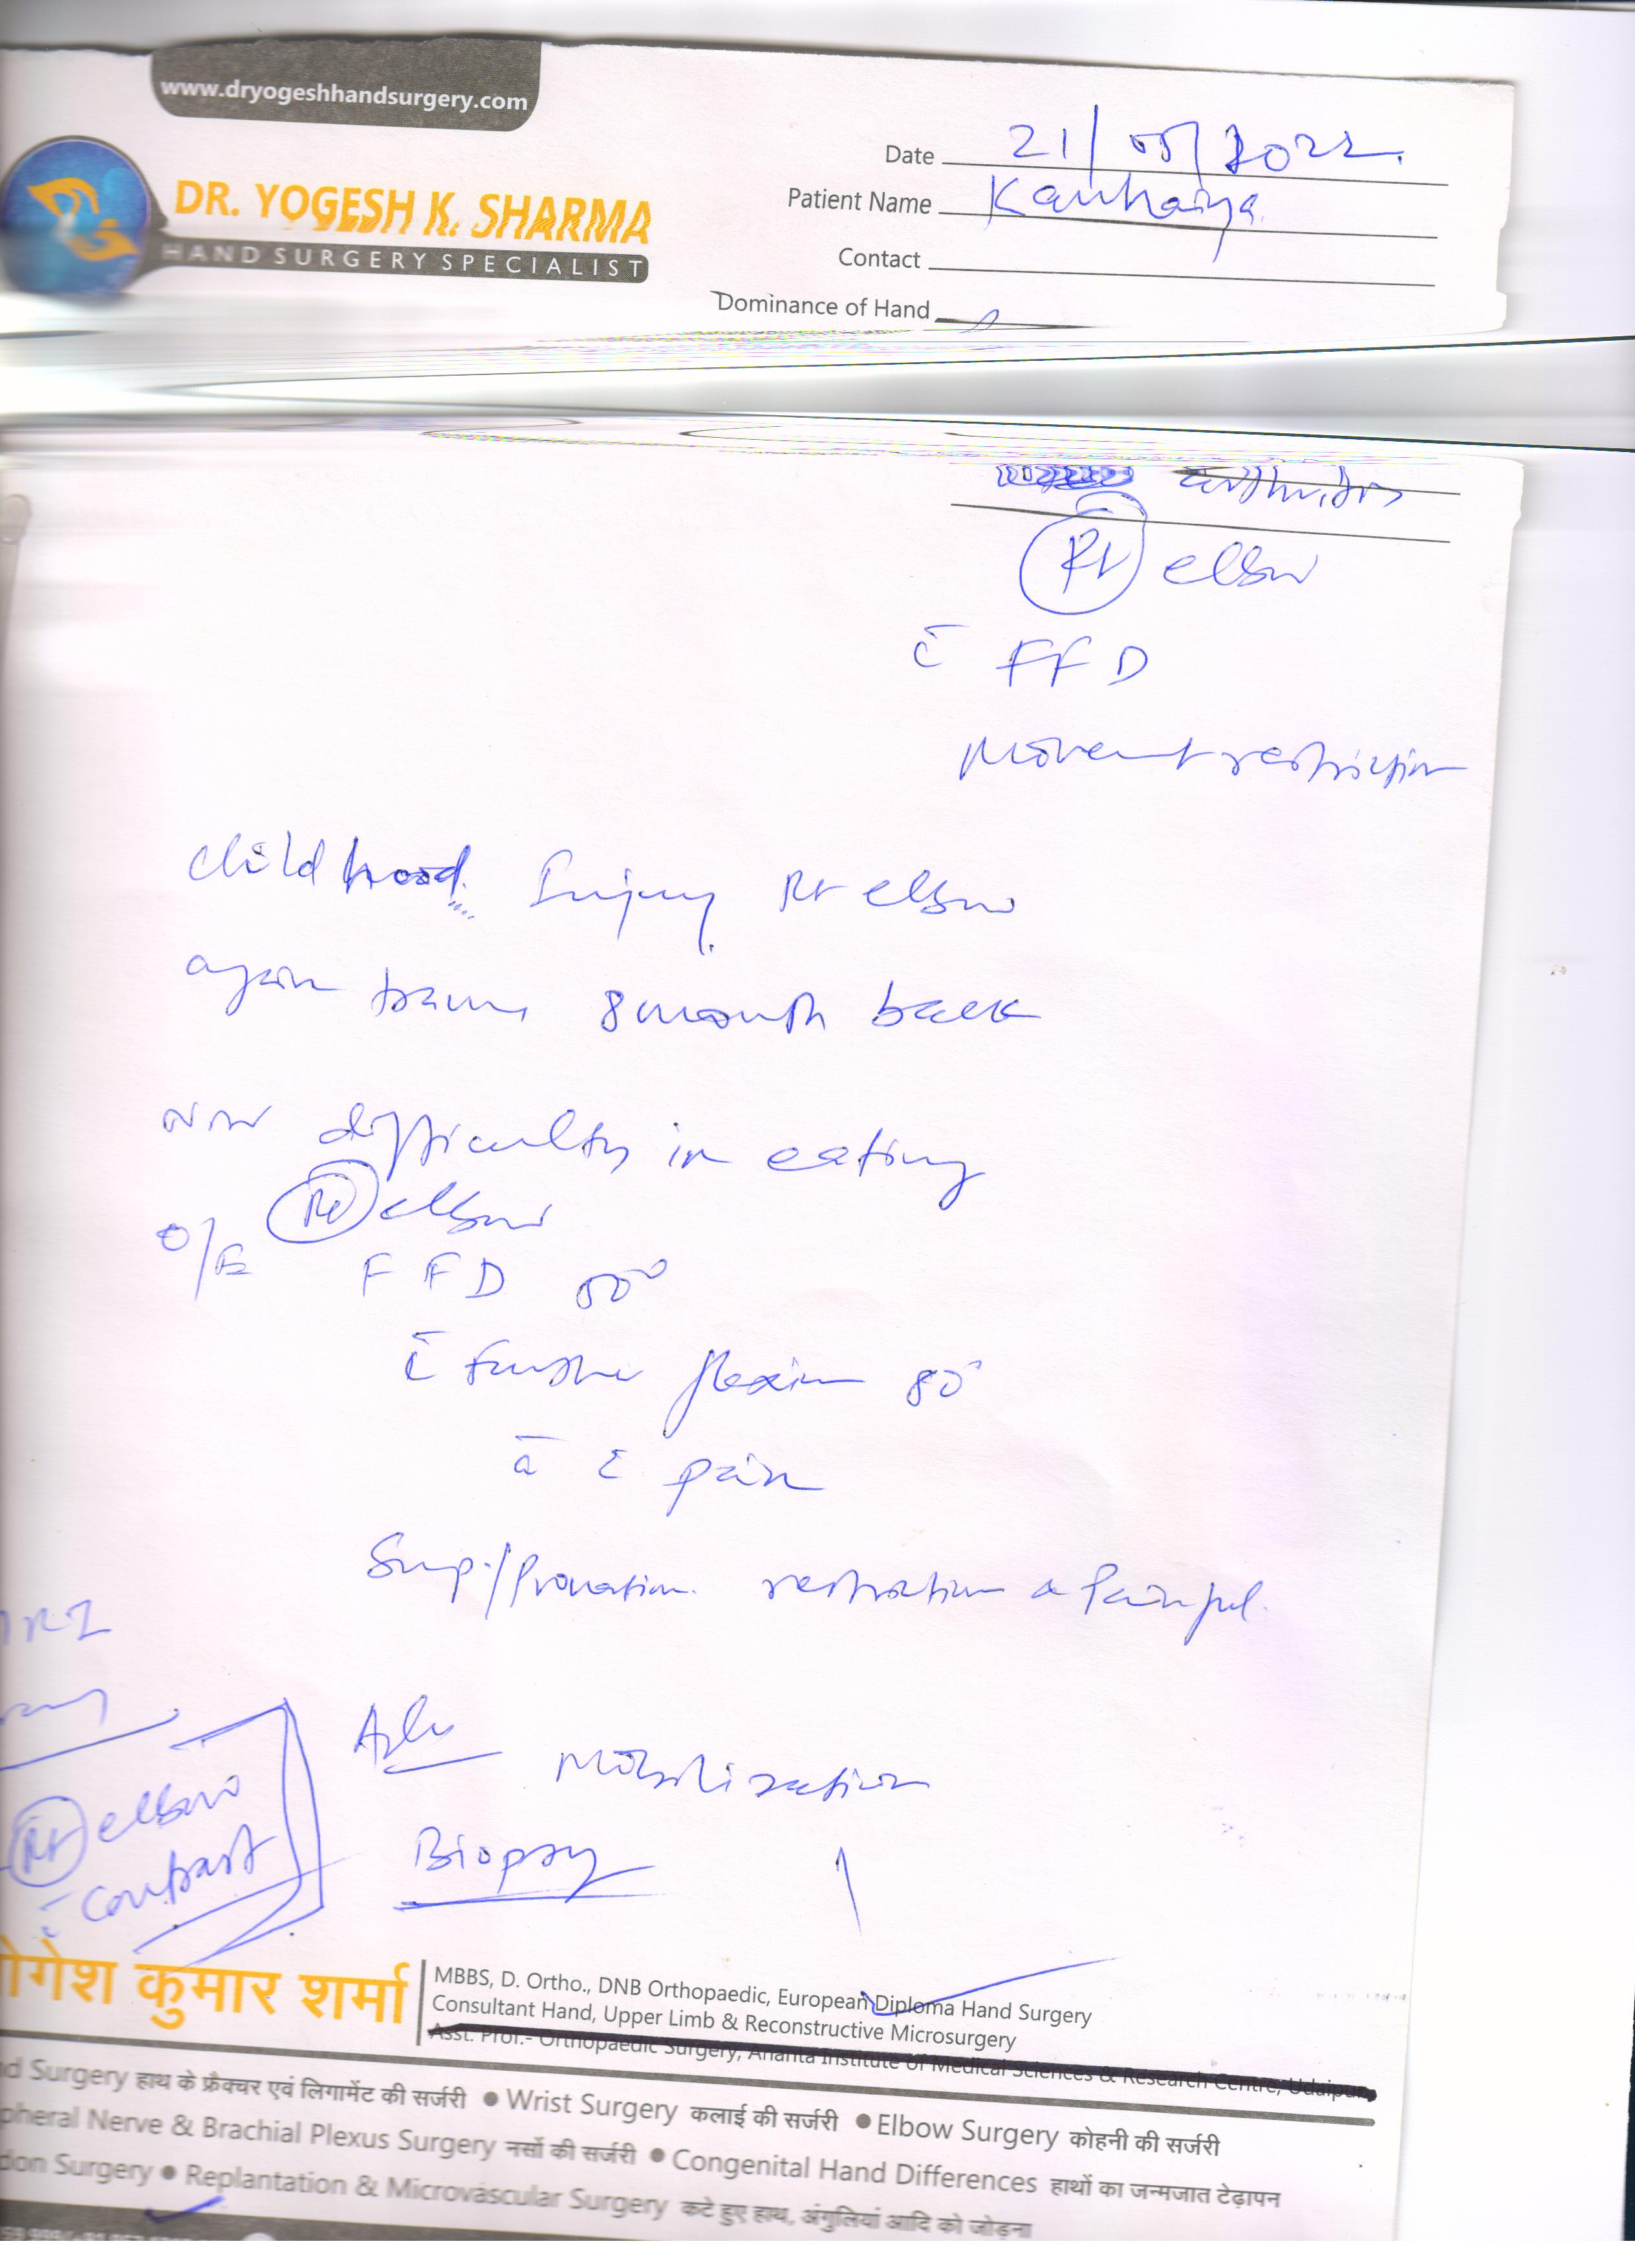 www.dryogeshhandsurgery.com
DR. YOGESH K. SHARMA
HAND SURGERY SPECIALIST
Date 21/05/2022.
Patient Name Kanhaiya
Contact
Dominance of Hand
arthritis
Rt elbow
c̄ FFD
movement restriction
childhood Injury Rt elbow
again trauma 8 month back
now difficulty in eating
O/E Rt elbow
FFD 50°
c̄ further flexion 80°
c̄ pain
Sup./Pronation restriction & painful.
MRI
Rt elbow
c̄ contrast
Adv
Mobilization
Biopsy
योगेश कुमार शर्मा
MBBS, D. Ortho., DNB Orthopaedic, European Diploma Hand Surgery
Consultant Hand, Upper Limb & Reconstructive Microsurgery
Asst. Prof.- Orthopaedic Surgery, Ananta Institute of Medical Sciences & Research Centre, Udaipur
Surgery हाथ के फ्रैक्चर एवं लिगामेंट की सर्जरी ● Wrist Surgery कलाई की सर्जरी ● Elbow Surgery कोहनी की सर्जरी
pheral Nerve & Brachial Plexus Surgery नसों की सर्जरी ● Congenital Hand Differences हाथों का जन्मजात टेढ़ापन
don Surgery ● Replantation & Microvascular Surgery कटे हुए हाथ, अंगुलियां आदि को जोड़ना